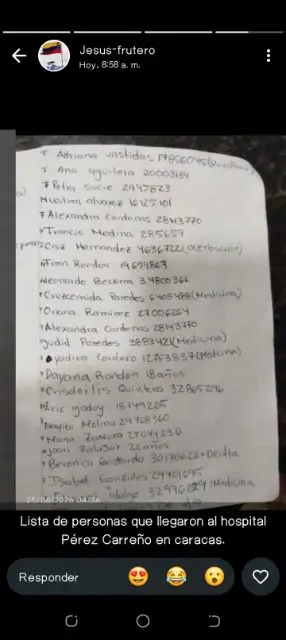 Jesus-frutero
Hoy, 8:58 a. m.
Adriana vastidas 17856045 (
Ana aguilera 20003134
Petra Sucre 2947823
alvarez 16125101
Alexandra Cardenas 28143770
Francis Medina 285659
Cruz Hernandez 4636722
Fran Rondon 19659867
Leonardo Becerra 34800366
Cruzcemida Paredes 6405488 (Medicina)
Oriana Ramirez 27006264
Alexandra Cardenas 28143770
Judid Paredes 388342 (Medicina)
Yadira Cordero 12763837 (Medicina)
Dayana Rondon 18 años
Crisdeilis Quintero 32865296
Eric godoy 18749225
Nayibi Molina 29768360
Maria 27044236
22 años
Berenice 30170626
Isabel Gonzales 29701695
Medicina
25/06/2026 04:36
Lista de personas que llegaron al hospital
Pérez Carreño en caracas.
Responder